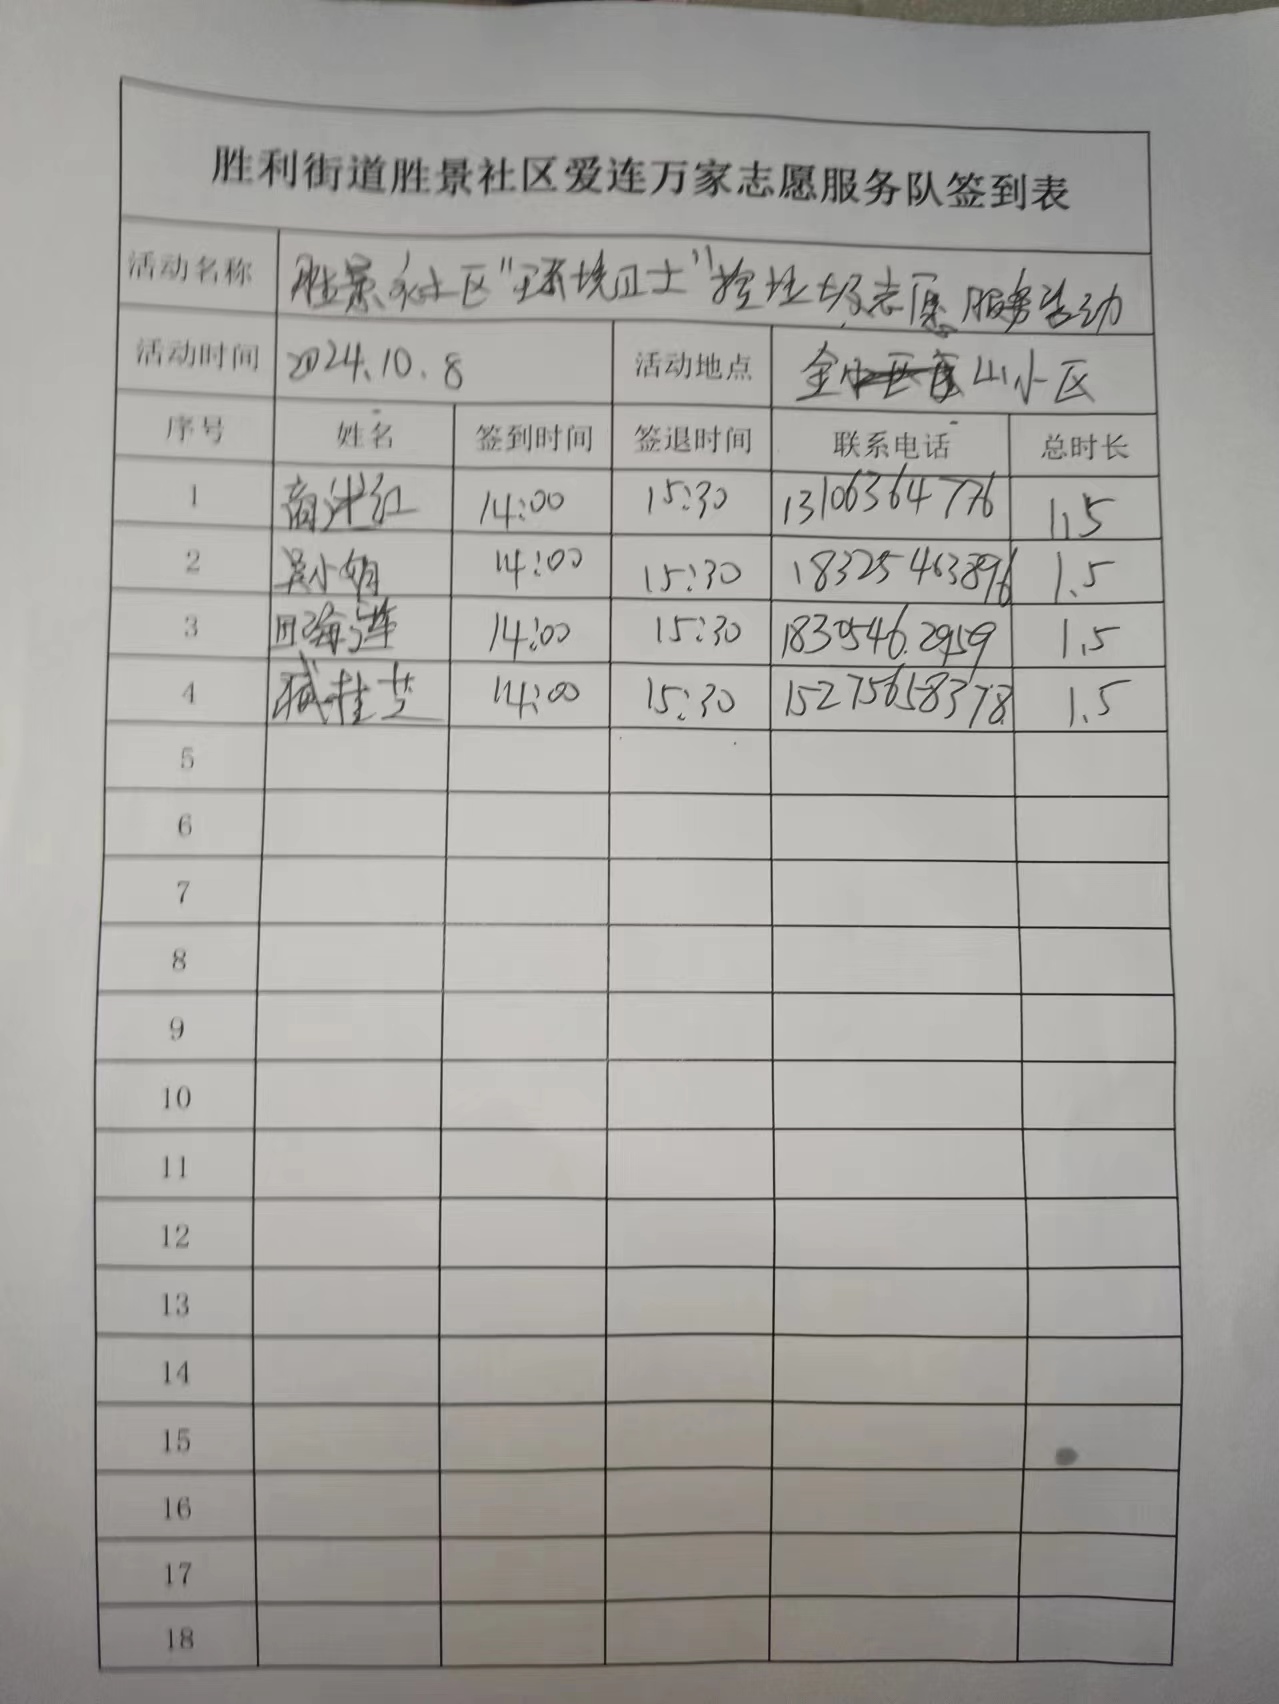 胜利街道胜景社区爱连万家志愿服务队签到表
活动名称 胜景社区“环境卫士”捡垃圾志愿服务活动
活动时间 2024.10.8 活动地点 金山小区
序号 姓名 签到时间 签退时间 联系电话 总时长
1 商洪红 14:00 15:30 13106364776 1.5
2 吴小娟 14:00 15:30 18325463896 1.5
3 田海莲 14:00 15:30 1830546.2959 1.5
4 臧桂芝 14:00 15:30 15275658378 1.5
5
6
7
8
9
10
11
12
13
14
15
16
17
18